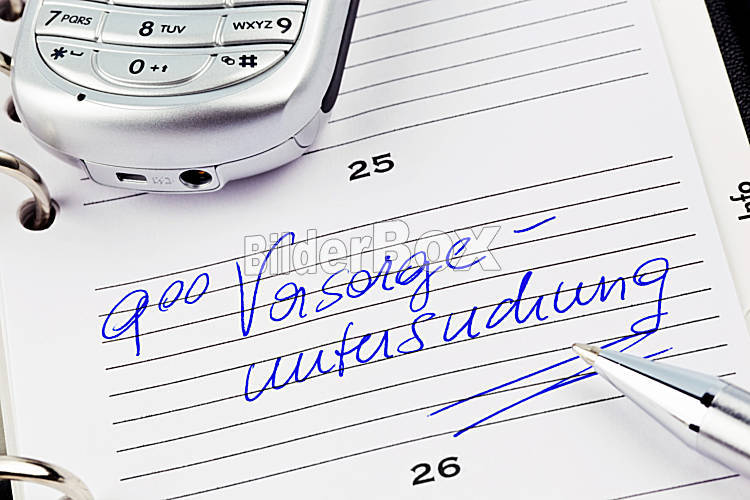 7 PQRS 8 TUV WXYZ 9
* 0 + #
25
BilderBox
9 00 Vorsorge-
untersuchung
Info
26